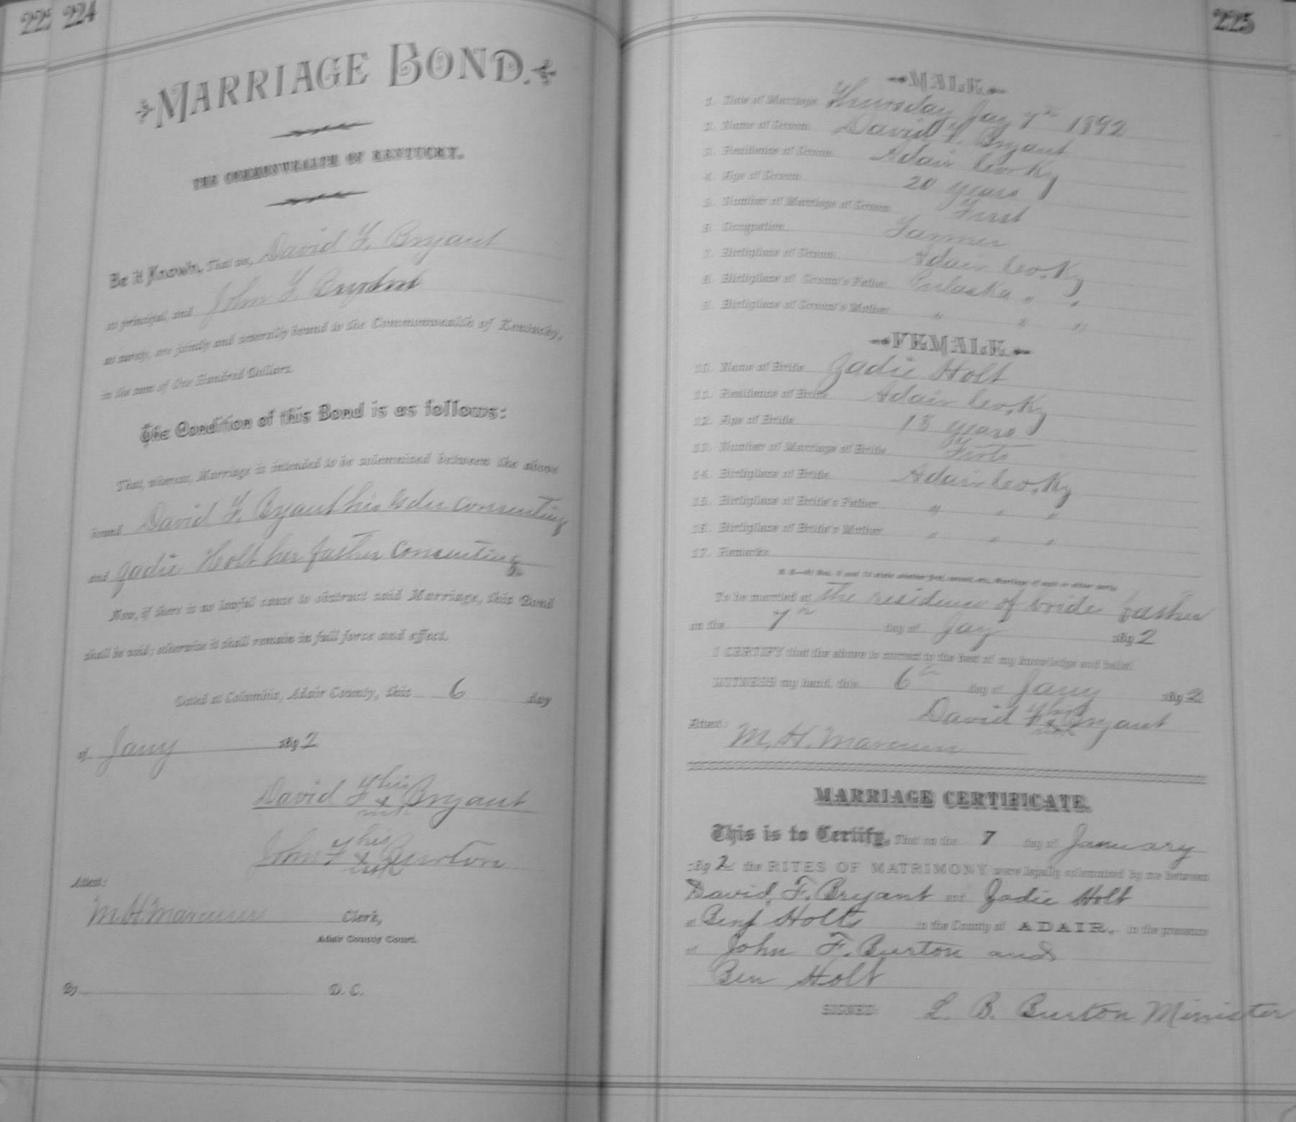 224
MARRIAGE BOND.
THE COMMONWEALTH OF KENTUCKY.
Be it Known, That we, David F. Bryant
as principal, and John F. Burton
as surety, are jointly and severally bound to the Commonwealth of Kentucky,
in the sum of One Hundred Dollars.
The Condition of this Bond is as follows:
That, whereas, Marriage is intended to be solemnized between the above
bound David F. Bryant his consenting
and Zadie Holt her father Consenting
Now, if there is no lawful cause to obstruct said Marriage, this Bond
shall be void; otherwise it shall remain in full force and effect.
Dated at Columbia, Adair County, this 6 day
of Jany 1892
David F his x mrk Bryant
John F his x mrk Burton
Attest:
M. H. Marcum Clerk,
Adair County Court.
By D. C.
225
MALE
1. Date of Marriage Thursday Jay 7th 1892
2. Name of Groom David F. Bryant
3. Residence of Groom Adair Co. Ky
4. Age of Groom 20 years
5. Number of Marriage of Groom First
6. Occupation Farmer
7. Birthplace of Groom Adair Co. Ky
8. Birthplace of Groom's Father Pulaska " "
9. Birthplace of Groom's Mother " " "
FEMALE
10. Name of Bride Zadie Holt
11. Residence of Bride Adair Co. Ky
12. Age of Bride 18 years
13. Number of Marriage of Bride First
14. Birthplace of Bride Adair Co. Ky
15. Birthplace of Bride's Father " " "
16. Birthplace of Bride's Mother " " "
17. Remarks
To be married at the residence of bride father
on the 7th day of Jay 1892
I CERTIFY that the above is correct to the best of my knowledge and belief.
WITNESS my hand, this 6th day of Jany 1892
David F his x mrk Bryant
Attest:
M. H. Marcum
MARRIAGE CERTIFICATE.
This is to Certify, That on the 7 day of January
1892 the RITES OF MATRIMONY were legally solemnized by me between
David F. Bryant and Zadie Holt
at Benj Holts in the County of ADAIR, in the presence
of John F. Burton and
Ben Holt
SIGNED: L. B. Burton Minister